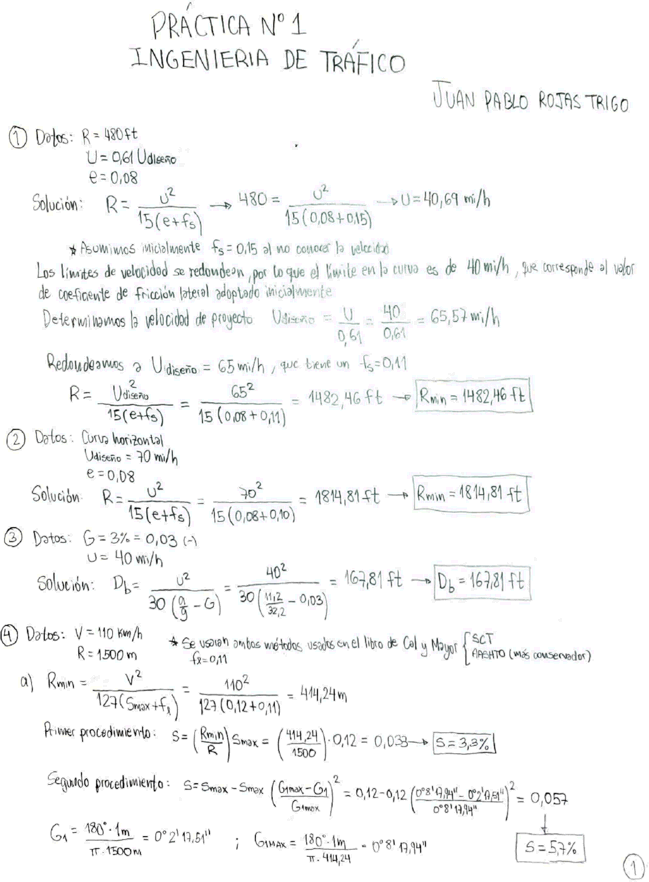 PRÁCTICA Nº 1
INGENIERIA DE TRÁFICO
JUAN PABLO ROJAS TRIGO
① Datos: R = 480 ft
U = 0,61 Udiseño
e = 0,08
Solución: R = U² / 15(e+fs) → 480 = U² / 15(0,08+0,15) → U = 40,69 mi/h
* Asumimos inicialmente fs = 0,15 al no conocer la velocidad
Los límites de velocidad se redondean, por lo que el límite en la curva es de 40 mi/h, que corresponde al valor
de coeficiente de fricción lateral adoptado inicialmente
Determinamos la velocidad de proyecto Udiseño = U / 0,61 = 40 / 0,61 = 65,57 mi/h
Redondeamos a Udiseño = 65 mi/h, que tiene un fs = 0,11
R = Udiseño² / 15(e+fs) = 65² / 15(0,08+0,11) = 1482,46 ft → Rmin = 1482,46 ft
② Datos: Curva horizontal
Udiseño = 70 mi/h
e = 0,08
Solución: R = U² / 15(e+fs) = 70² / 15(0,08+0,10) = 1814,81 ft → Rmin = 1814,81 ft
③ Datos: G = 3% = 0,03 (-)
U = 40 mi/h
Solución: Db = U² / 30(a/g - G) = 40² / 30(11,2/32,2 - 0,03) = 167,81 ft → Db = 167,81 ft
④ Datos: V = 110 km/h * Se usarán ambos métodos usados en el libro de Cal y Mayor { SCT
R = 1500 m fx = 0,11 AASHTO (más conservador)
a) Rmin = V² / 127(Smax+fx) = 110² / 127(0,12+0,11) = 414,24 m
Primer procedimiento: S = (Rmin / R) Smax = (414,24 / 1500) · 0,12 = 0,033 → S = 3,3%
Segundo procedimiento: S = Smax - Smax (G1max - G1 / G1max)² = 0,12 - 0,12 (0°8'17,94" - 0°2'17,51" / 0°8'17,94")² = 0,057
G1 = 180° · 1m / π · 1500m = 0°2'17,51" ; G1MAX = 180° · 1m / π · 414,24 = 0°8'17,94" S = 5,7%
①